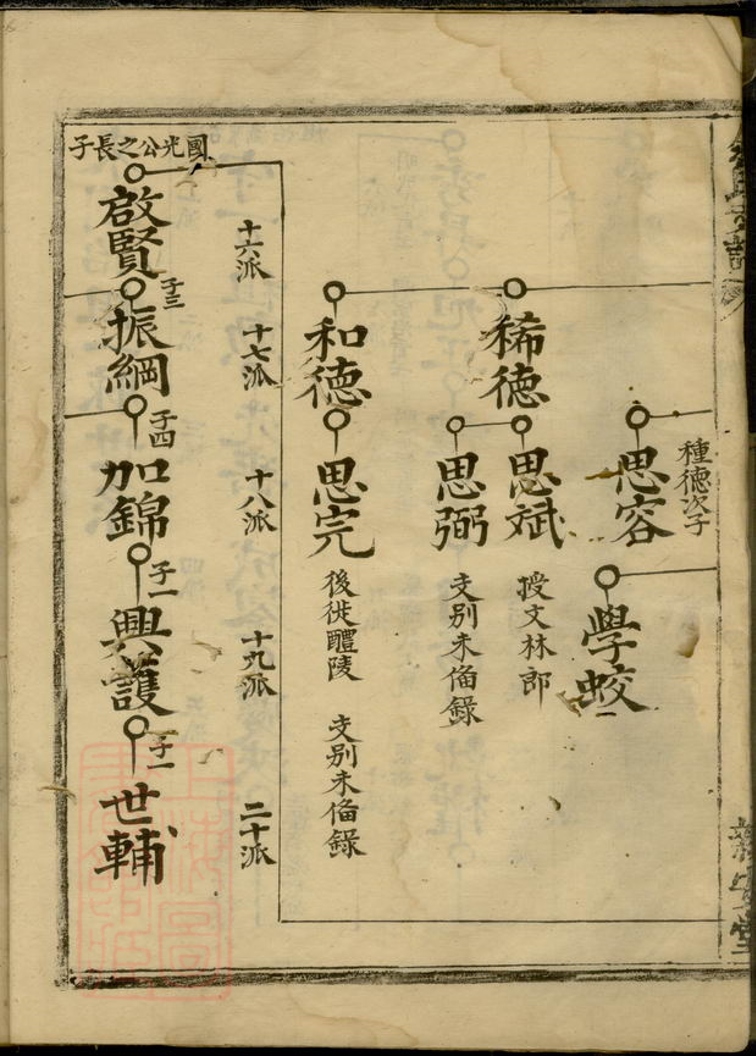 種德次子
思容
學蛟
稀德
思斌
授文林郎
思弼
支别未偹錄
和德
思完
後徙醴陵
支别未偹錄
十六派
十七派
十八派
十九派
二十派
國光公之長子
啟賢
子三
振綱
子四
加錦
子一
興護
子一
世輔